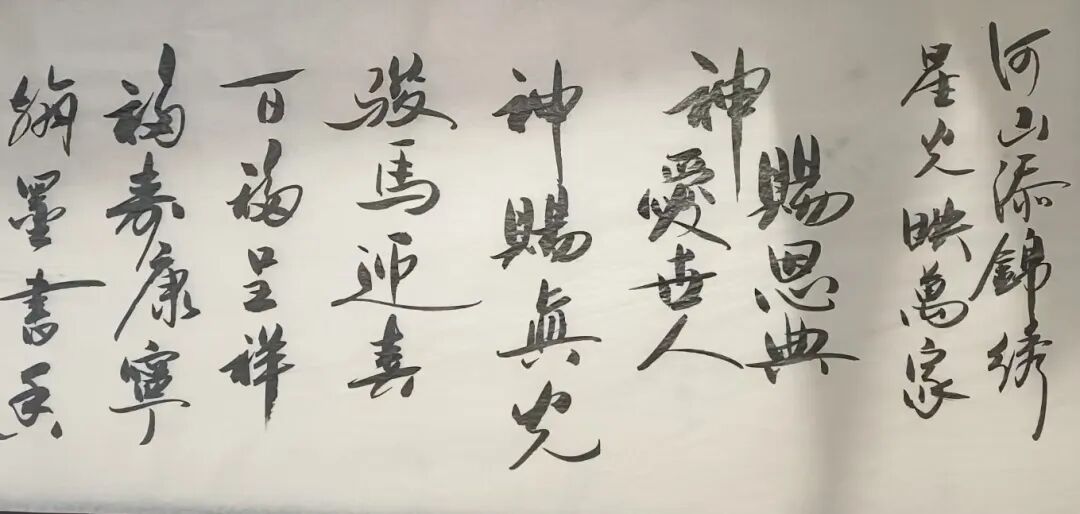 河山添錦绣
星光映萬家
神賜恩典
愛世人
神賜真光
骏馬迎喜
百福呈祥
福寿康寧
翰墨書香